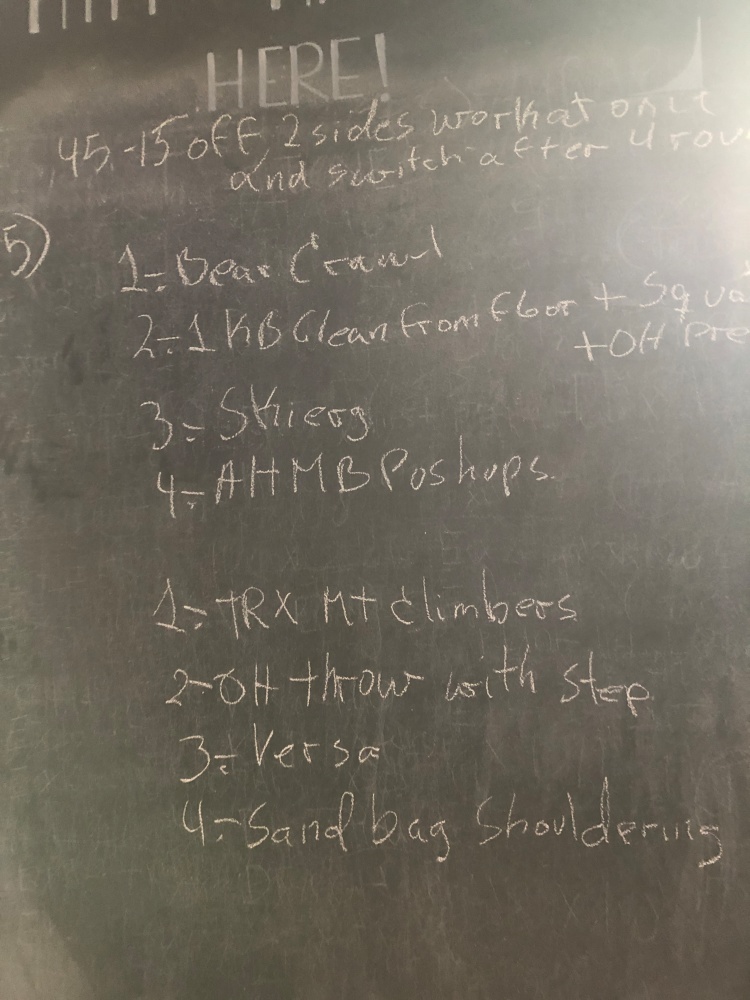 HERE!
45-15 off 2 sides work at once
and switch after 4 rou
5)
1- Bear Crawl
2- 1 KB Clean from Floor + Squa
+OH Pre
3- Skierg
4- AHMB Poshups.
1- TRX Mt climbers
2- OH throw with step
3- Versa
4- Sandbag Shouldering